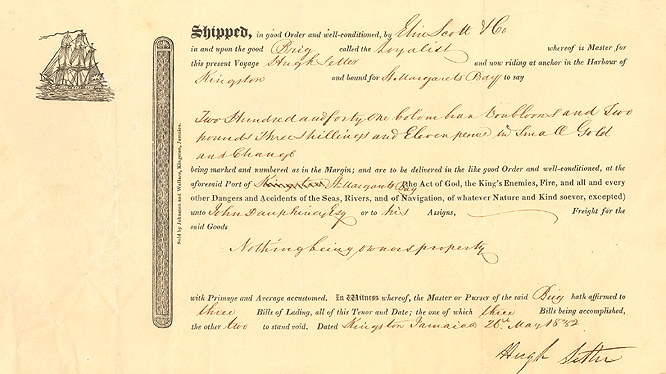 Shipped, in good Order and well-conditioned, by Elin Scott & Co
in and upon the good Brig called the Loyalist whereof is Master for
this present Voyage Hugh Setter and now riding at anchor in the Harbour of
Kingston and bound for St. Margarets Bay to say
Two Hundred and forty One Colombian Doubloons and Two
pounds Three shillings and Eleven pence in Small Gold
and Change
being marked and numbered as in the Margin; and are to be delivered in the like good Order and well-conditioned, at the
aforesaid Port of Kingston St Margarets Bay (the Act of God, the King's Enemies, Fire, and all and every
other Dangers and Accidents of the Seas, Rivers, and of Navigation, of whatever Nature and Kind soever, excepted)
unto John Dauphiney Esq or to his Assigns, Freight for the
said Goods
Nothing being owners property
with Primage and Average accustomed. In Witness whereof, the Master or Purser of the said Brig hath affirmed to
three Bills of Lading, all of this Tenor and Date; the one of which three Bills being accomplished,
the other two to stand void. Dated Kingston Jamaica 26th May 1832
Hugh Setter
Sold by Johnson and Wallace, Kingston, Jamaica.